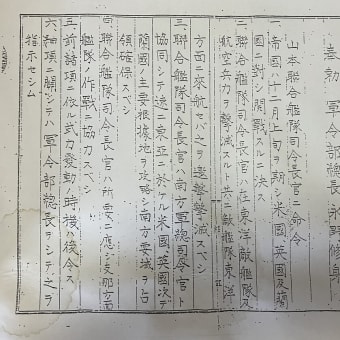 奉勅 軍令部總長 永野修身
山本聯合艦隊司令長官ニ命令
一、帝國ハ十二月上旬ヲ期シ米國、英國及蘭
國ニ對シ開戰スルニ決ス
二、聯合艦隊司令長官ハ在東洋敵艦隊及
航空兵力ヲ撃滅スルト共ニ敵艦隊東洋
方面ニ來航セバ之ヲ邀撃撃滅スベシ
三、聯合艦隊司令長官ハ南方軍總司令官ト
協同シテ速ニ東亞ニ於ケル米國、英國次デ
蘭國ノ主要根據地ヲ攻略シ南方要域ヲ占
領確保スベシ
四、聯合艦隊司令長官ハ所要ニ應ジ支那方面
艦隊ノ作戰ニ協力スベシ
五、前諸項ニ依ル武力發動ノ時機ハ後令ス
六、細項ニ關シテハ軍令部總長ヲシテ之ヲ
指示セシム